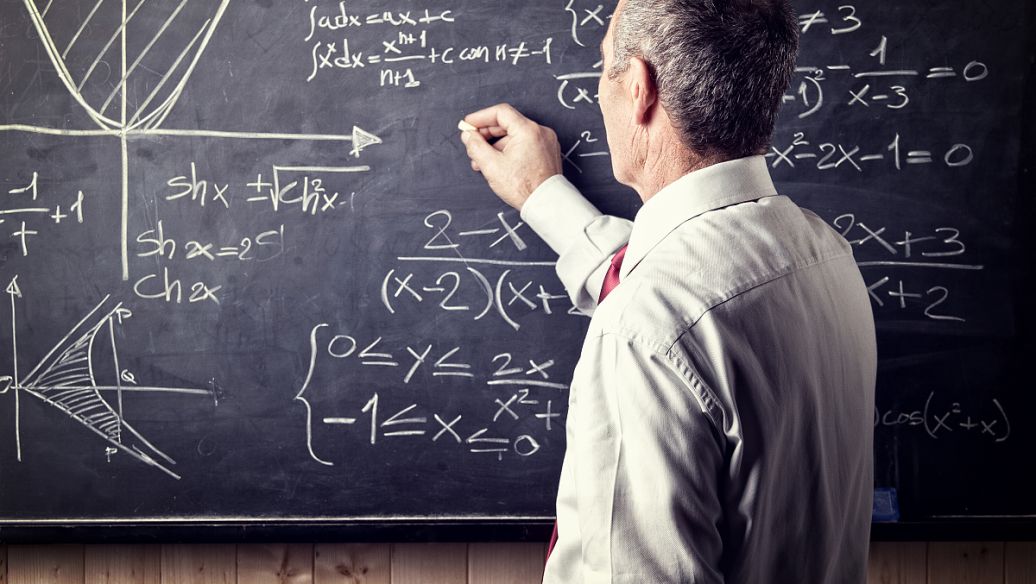 ∫adx=ax+c
∫xⁿdx=xⁿ⁺¹/n+1 +c con n≠-1
{x
≠3
1/(x
-1)² - 1/x-3 =0
x²-
x²-2x-1=0
-1/T +1
shx ±√ch²x-1
sh2x=2S
ch2x
2-x/(x-2)(x+
2x+3/x+2
0≤y≤ 2x/x²+
-1≤x≤0
P
O
Q
P
cos(x²+x)